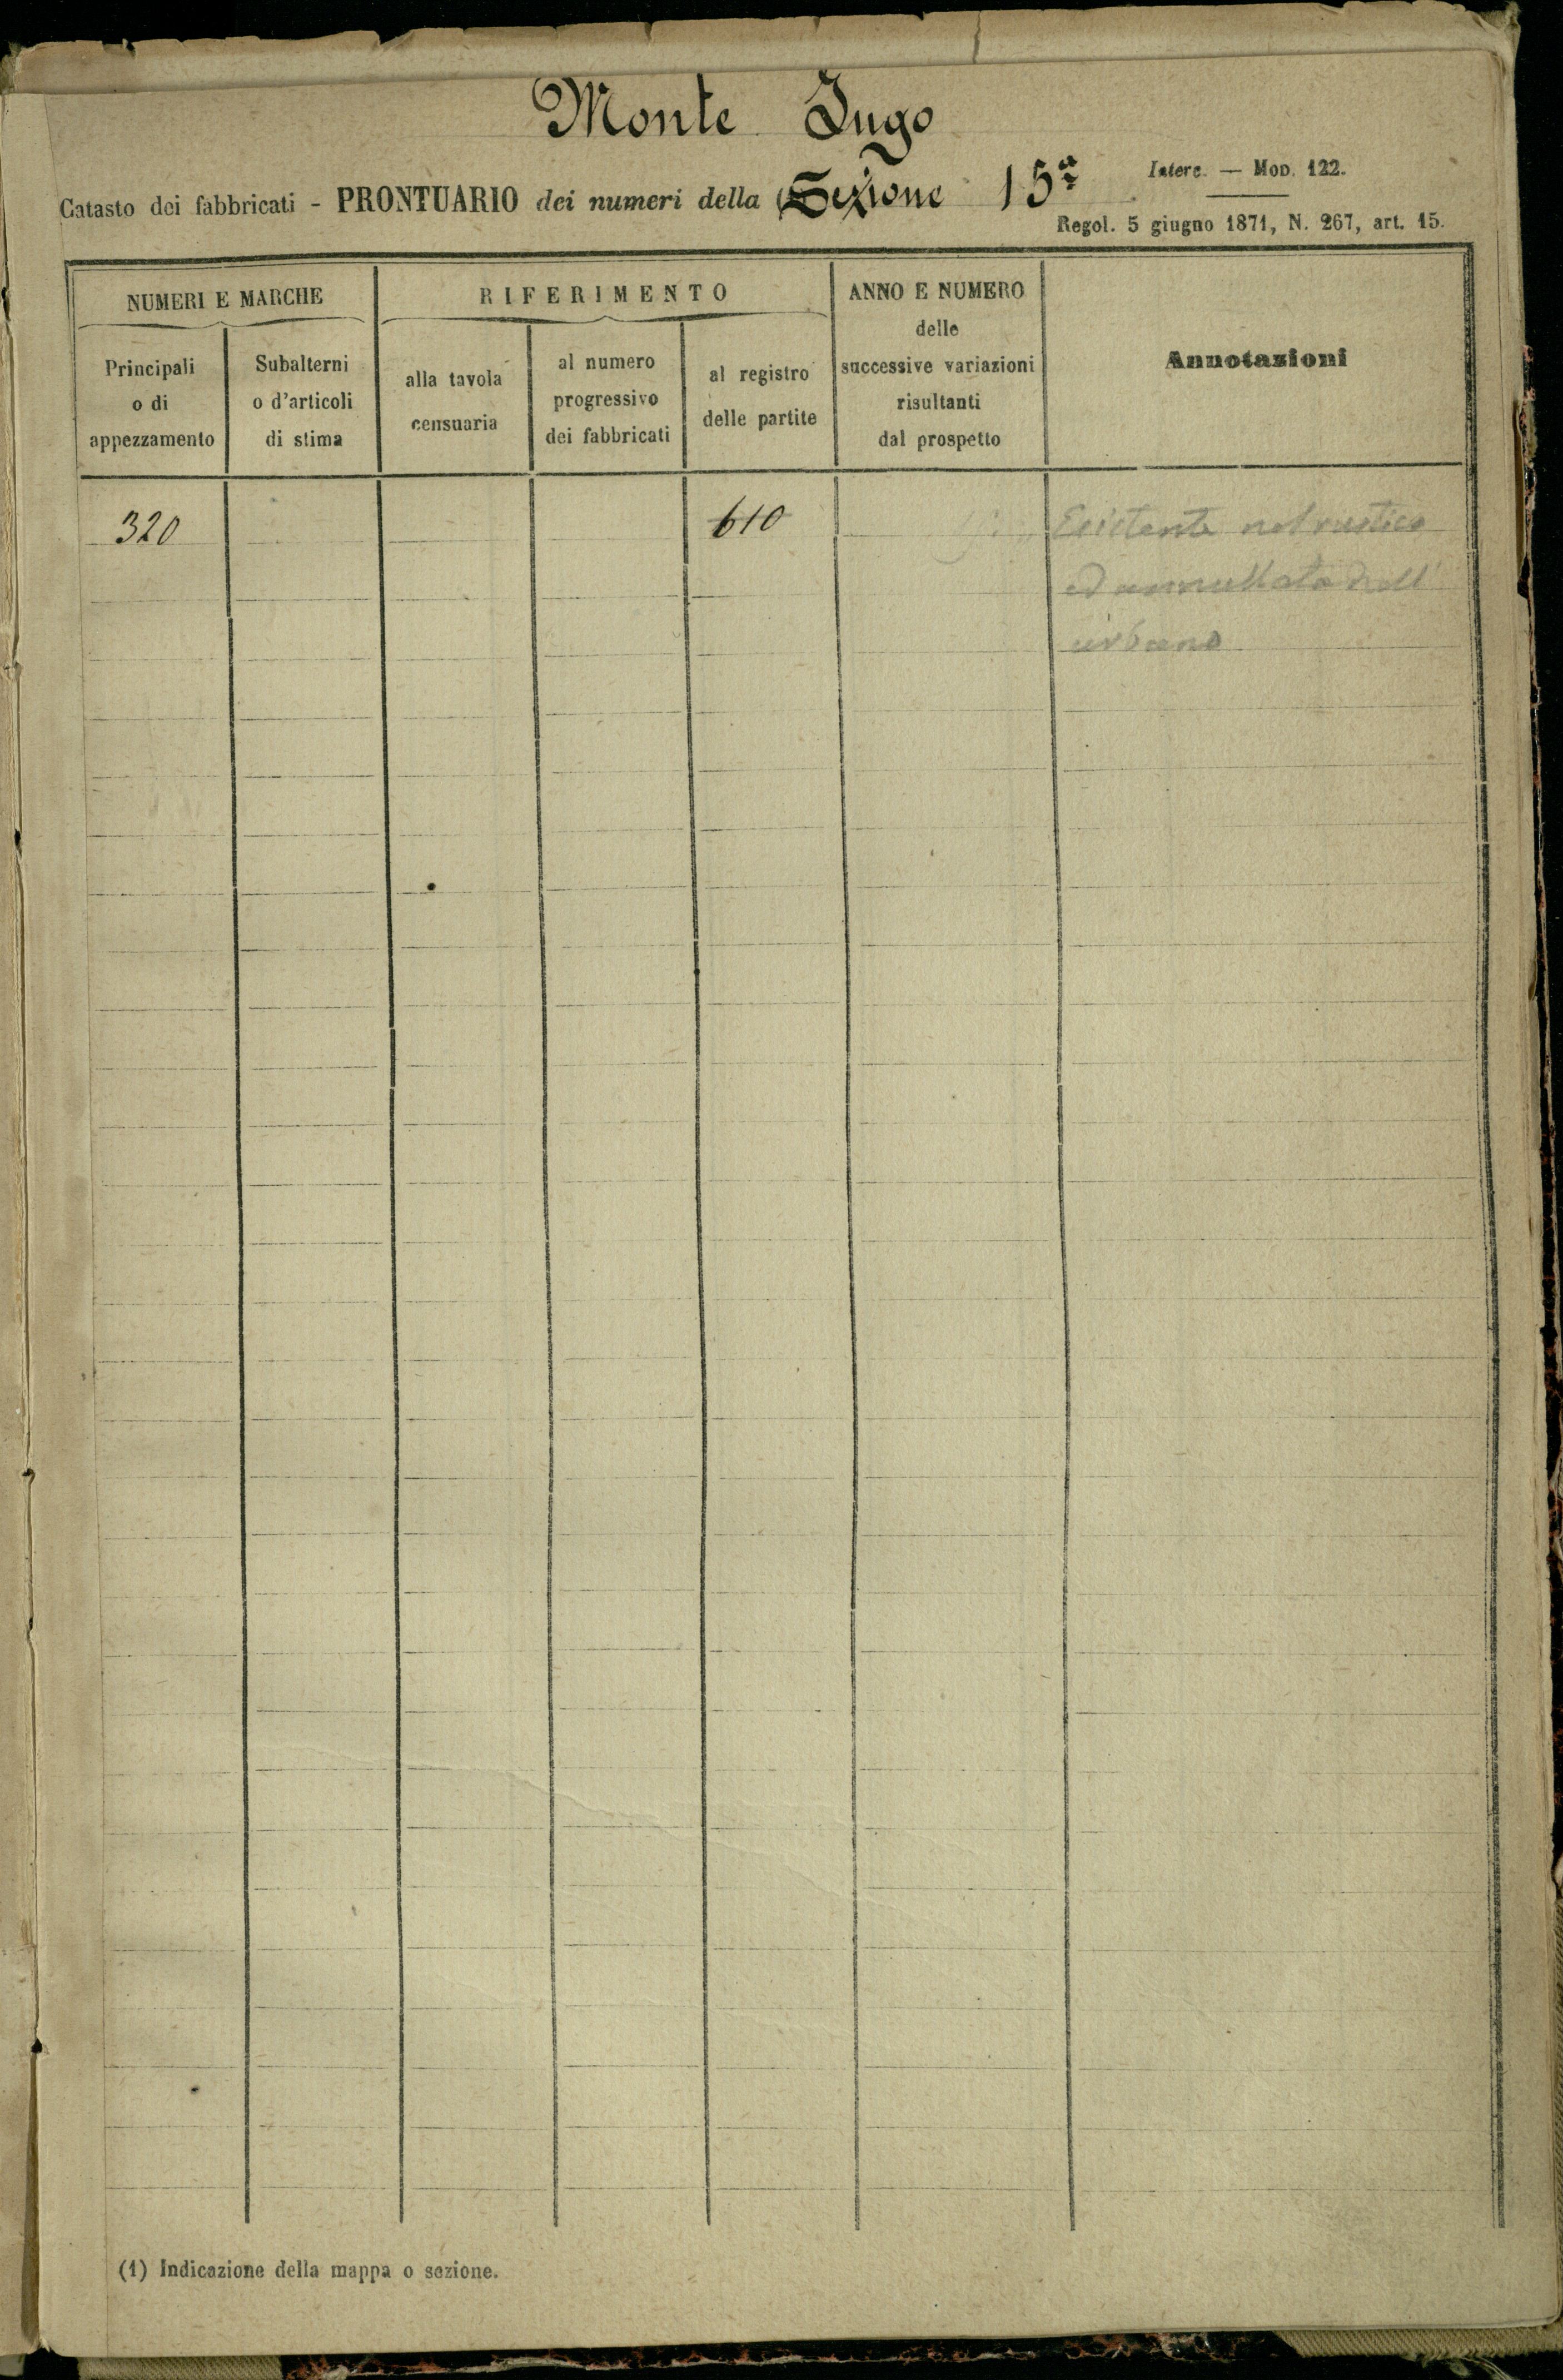 Monte Jugo
Catasto dei fabbricati - PRONTUARIO dei numeri della Sezione 15ª
Interc. — Mod. 122.
Regol. 5 giugno 1871, N. 267, art. 15.
NUMERI E MARCHE
RIFERIMENTO
ANNO E NUMERO
delle
successive variazioni
risultanti
dal prospetto
Annotazioni
Principali
o di
appezzamento
Subalterni
o d'articoli
di stima
alla tavola
censuaria
al numero
progressivo
dei fabbricati
al registro
delle partite
320
610
Esistente nel rustico
ed annullato nell'
urbano
(1) Indicazione della mappa o sezione.